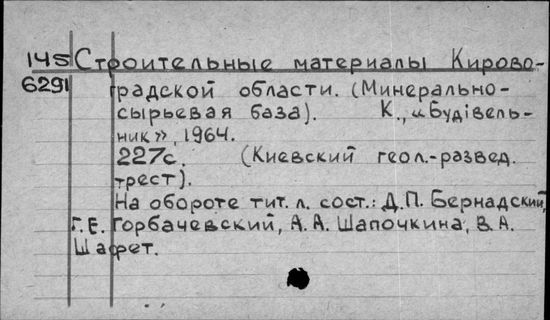 145 Строительные материалы Кирово-
6291 градской области. (Минерально-
сырьевая база). К., «Будівель-
ник», 1964.
227с. (Киевский геол.-развед.
трест).
На обороте тит. л. сост.: Д.П. Бернадский,
Г.Е. Горбачевский, А.А. Шапочкина, В.А.
Шафет.